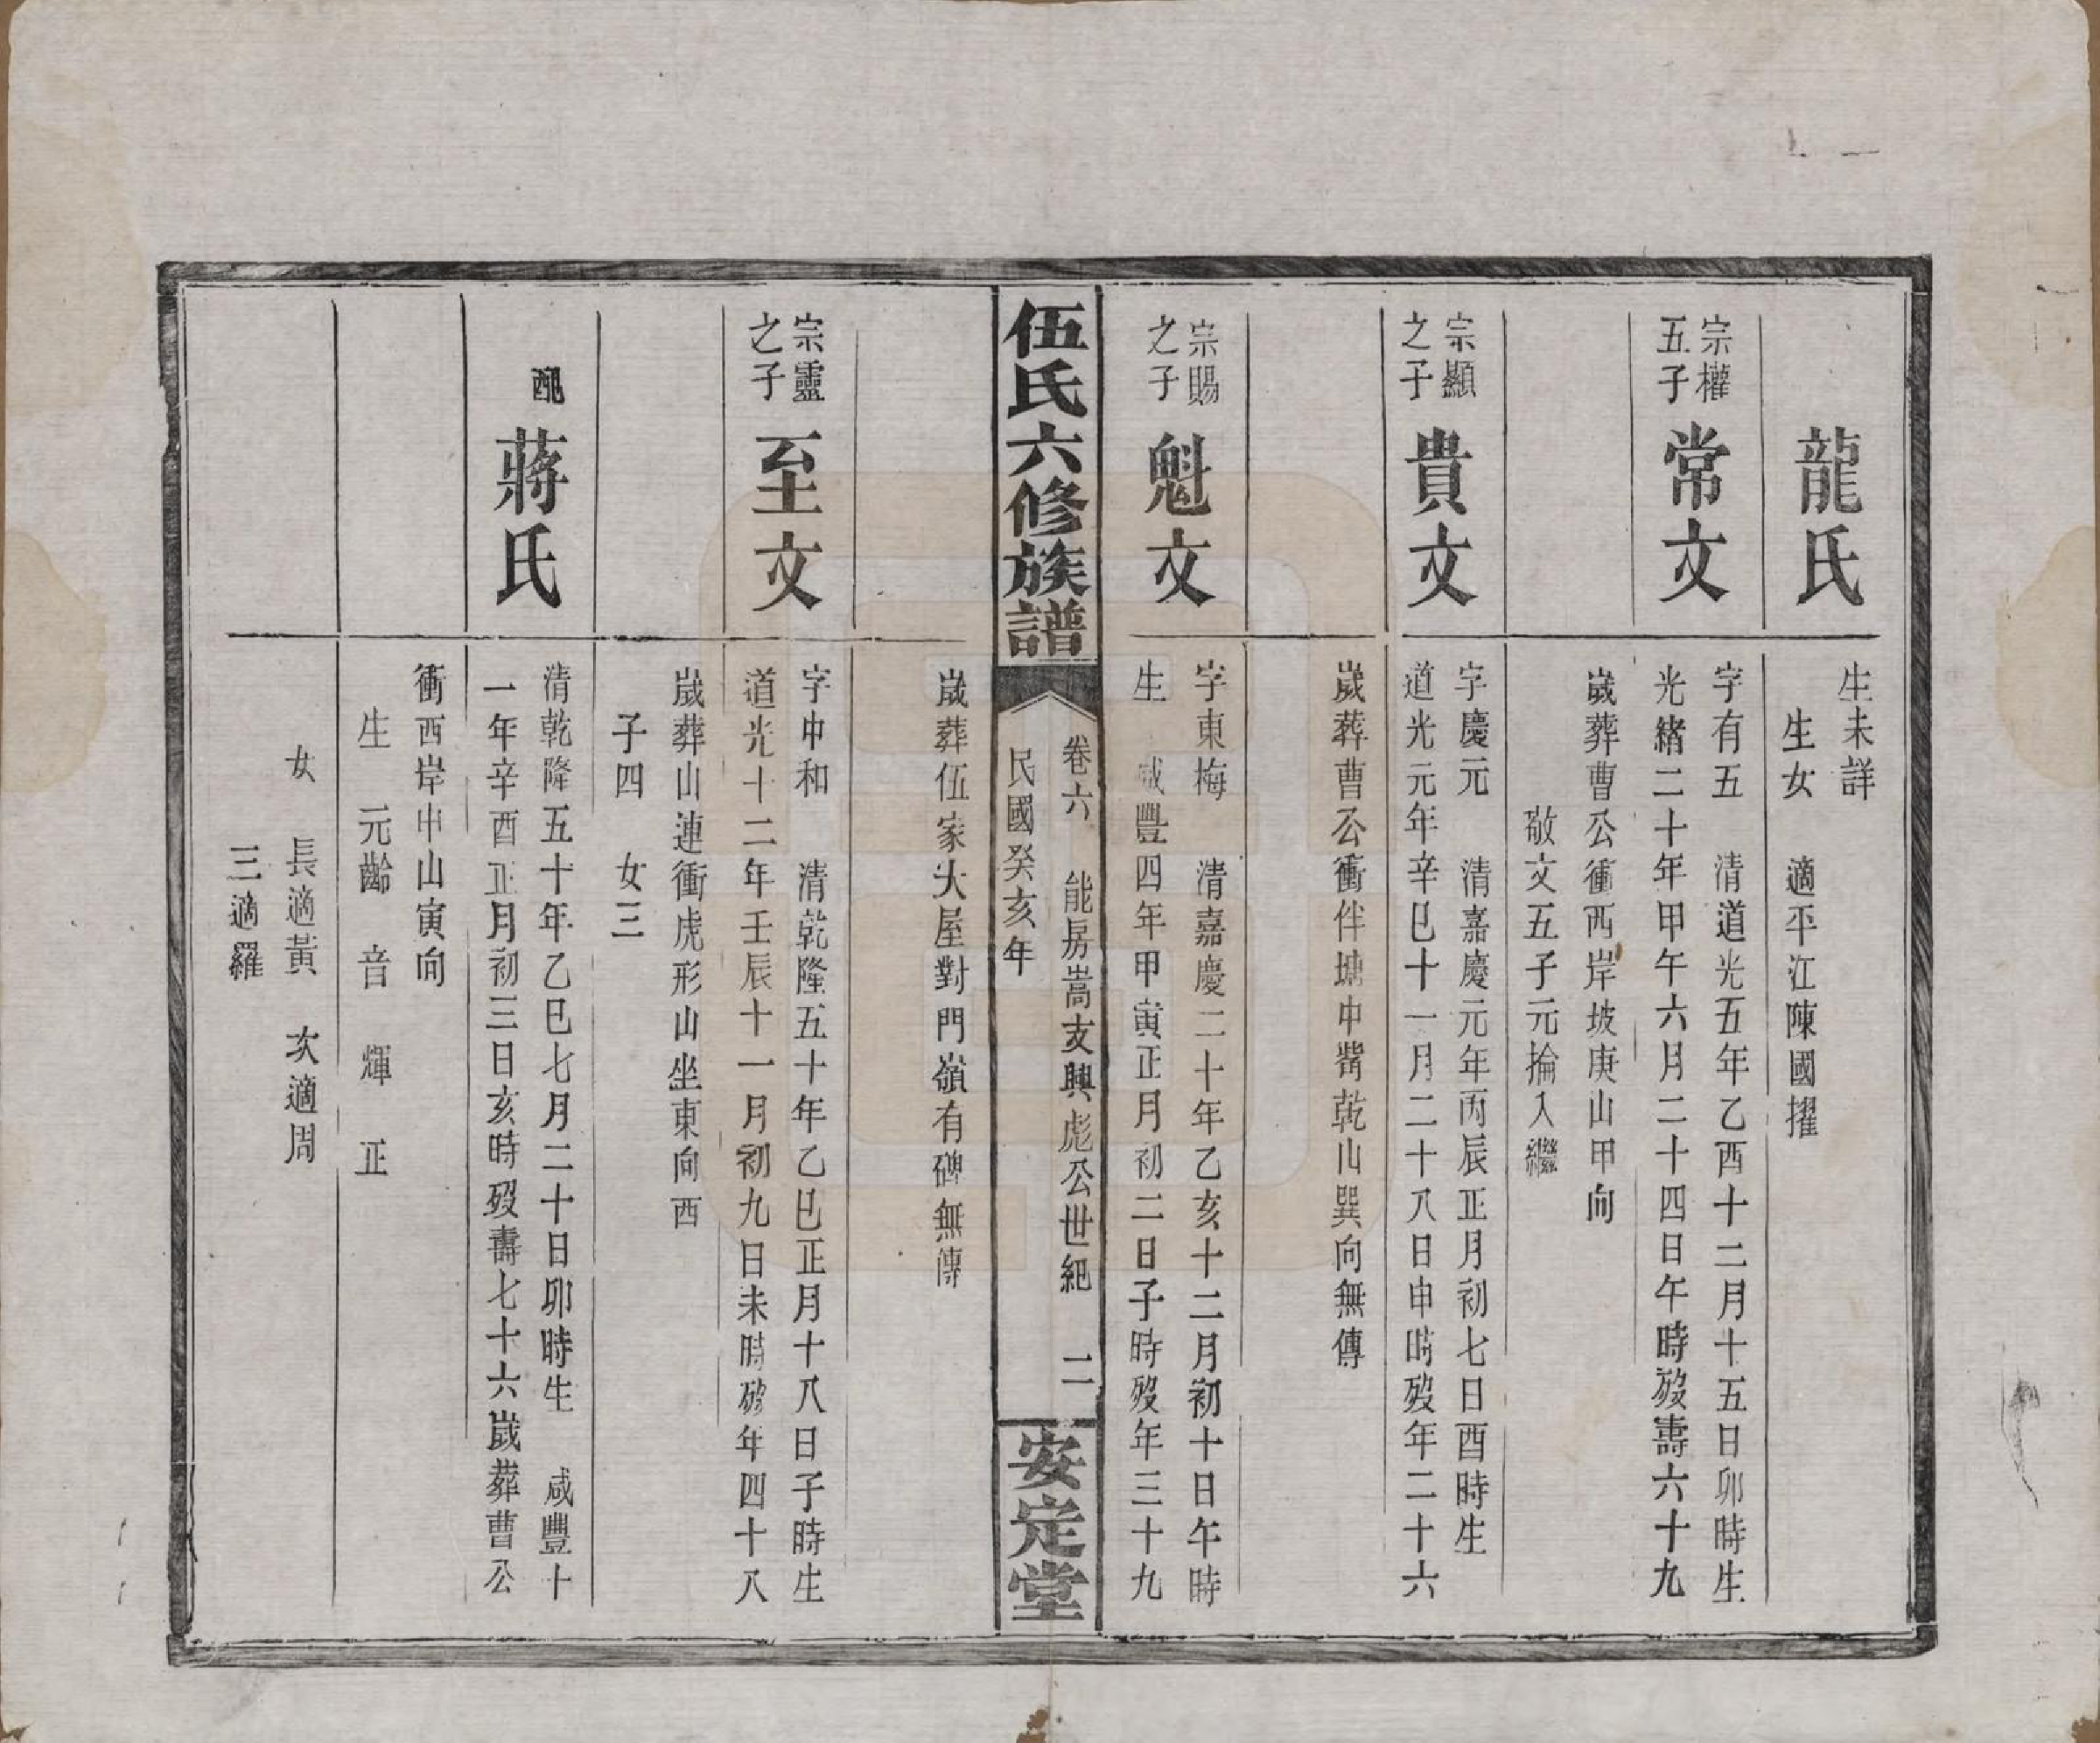 龍氏
生未詳
生女　適平江陳國擢
宗權
五子
常文
字有五　清道光五年乙酉十二月十五日卯時生
光緒二十年甲午六月二十四日午時歿壽六十九
歲葬曹公衝西岸坡庚山甲向
敬文五子元掄入繼
宗顯
之子
貴文
字慶元　清嘉慶元年丙辰正月初七日酉時生
道光元年辛巳十一月二十八日申時歿年二十六
歲葬曹公衝伴塘中嘴乾山巽向無傳
宗賜
之子
魁文
字東梅　清嘉慶二十年乙亥十二月初十日午時
生　咸豐四年甲寅正月初二日子時歿年三十九
伍氏六修族譜
卷六　能房嵩支興彪公世紀　二
民國癸亥年
安定堂
歲葬伍家大屋對門嶺有碑無傳
宗靈
之子
至文
字中和　清乾隆五十年乙巳正月十八日子時生
道光十二年壬辰十一月初九日未時歿年四十八
歲葬山連衝虎形山坐東向西
子四　女三
配
蔣氏
清乾隆五十年乙巳七月二十日卯時生　咸豐十
一年辛酉正月初三日亥時歿壽七十六歲葬曹公
衝西岸中山寅向
生　元齡　音　輝　正
女　長適黃　次適周
三適羅